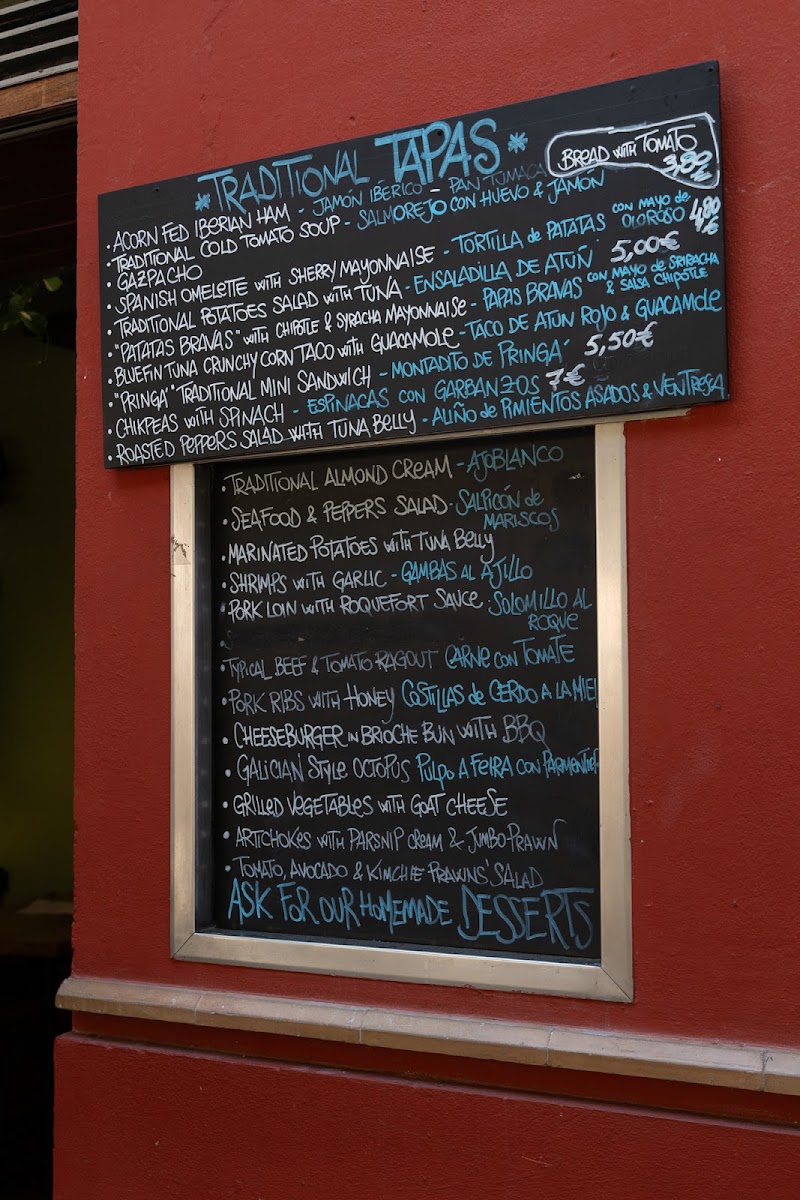 *TRADITIONAL TAPAS*
BREAD WITH TOMATO 3,80 €
• ACORN FED IBERIAN HAM - JAMÓN IBÉRICO - PAN TUMACA
• TRADITIONAL COLD TOMATO SOUP - SALMOREJO CON HUEVO & JAMÓN
• GAZPACHO
• SPANISH OMELETTE WITH SHERRY MAYONNAISE - TORTILLA de PATATAS CON MAYO de OLOROSO 4,80 €
• TRADITIONAL POTATOES SALAD WITH TUNA - ENSALADILLA DE ATÚN 5,00€
• "PATATAS BRAVAS" WITH CHIPOTLE & SYRACHA MAYONNAISE - PAPAS BRAVAS CON MAYO de SRIRACHA & SALSA CHIPOTLE
• BLUEFIN TUNA CRUNCHY CORN TACO WITH GUACAMOLE - TACO DE ATÚN ROJO & GUACAMOLE
• "PRINGÁ" TRADITIONAL MINI SANDWICH - MONTADITO DE PRINGÁ 5,50€
• CHIKPEAS WITH SPINACH - ESPINACAS CON GARBANZOS 7€
• ROASTED PEPPERS SALAD WITH TUNA BELLY - ALIÑO de PIMIENTOS ASADOS & VENTRESCA
• TRADITIONAL ALMOND CREAM - AJOBLANCO
• SEAFOOD & PEPPERS SALAD - SALPICÓN de
MARISCOS
• MARINATED POTATOES WITH TUNA BELLY
• SHRIMPS WITH GARLIC - GAMBAS AL AJILLO
• PORK LOIN WITH ROQUEFORT SAUCE - SOLOMILLO AL
ROQUE
• TYPICAL BEEF & TOMATO RAGOUT CARNE CON TOMATE
• PORK RIBS WITH HONEY COSTILLAS de CERDO A LA MIEL
• CHEESEBURGER IN BRIOCHE BUN WITH BBQ
• GALICIAN STYLE OCTOPUS PULPO A FEIRA CON PARMENTIER
• GRILLED VEGETABLES WITH GOAT CHEESE
• ARTICHOKES WITH PARSNIP CREAM & JUMBO-PRAWN
• TOMATO, AVOCADO & KIMCHIE PRAWNS' SALAD
ASK FOR OUR HOMEMADE DESSERTS